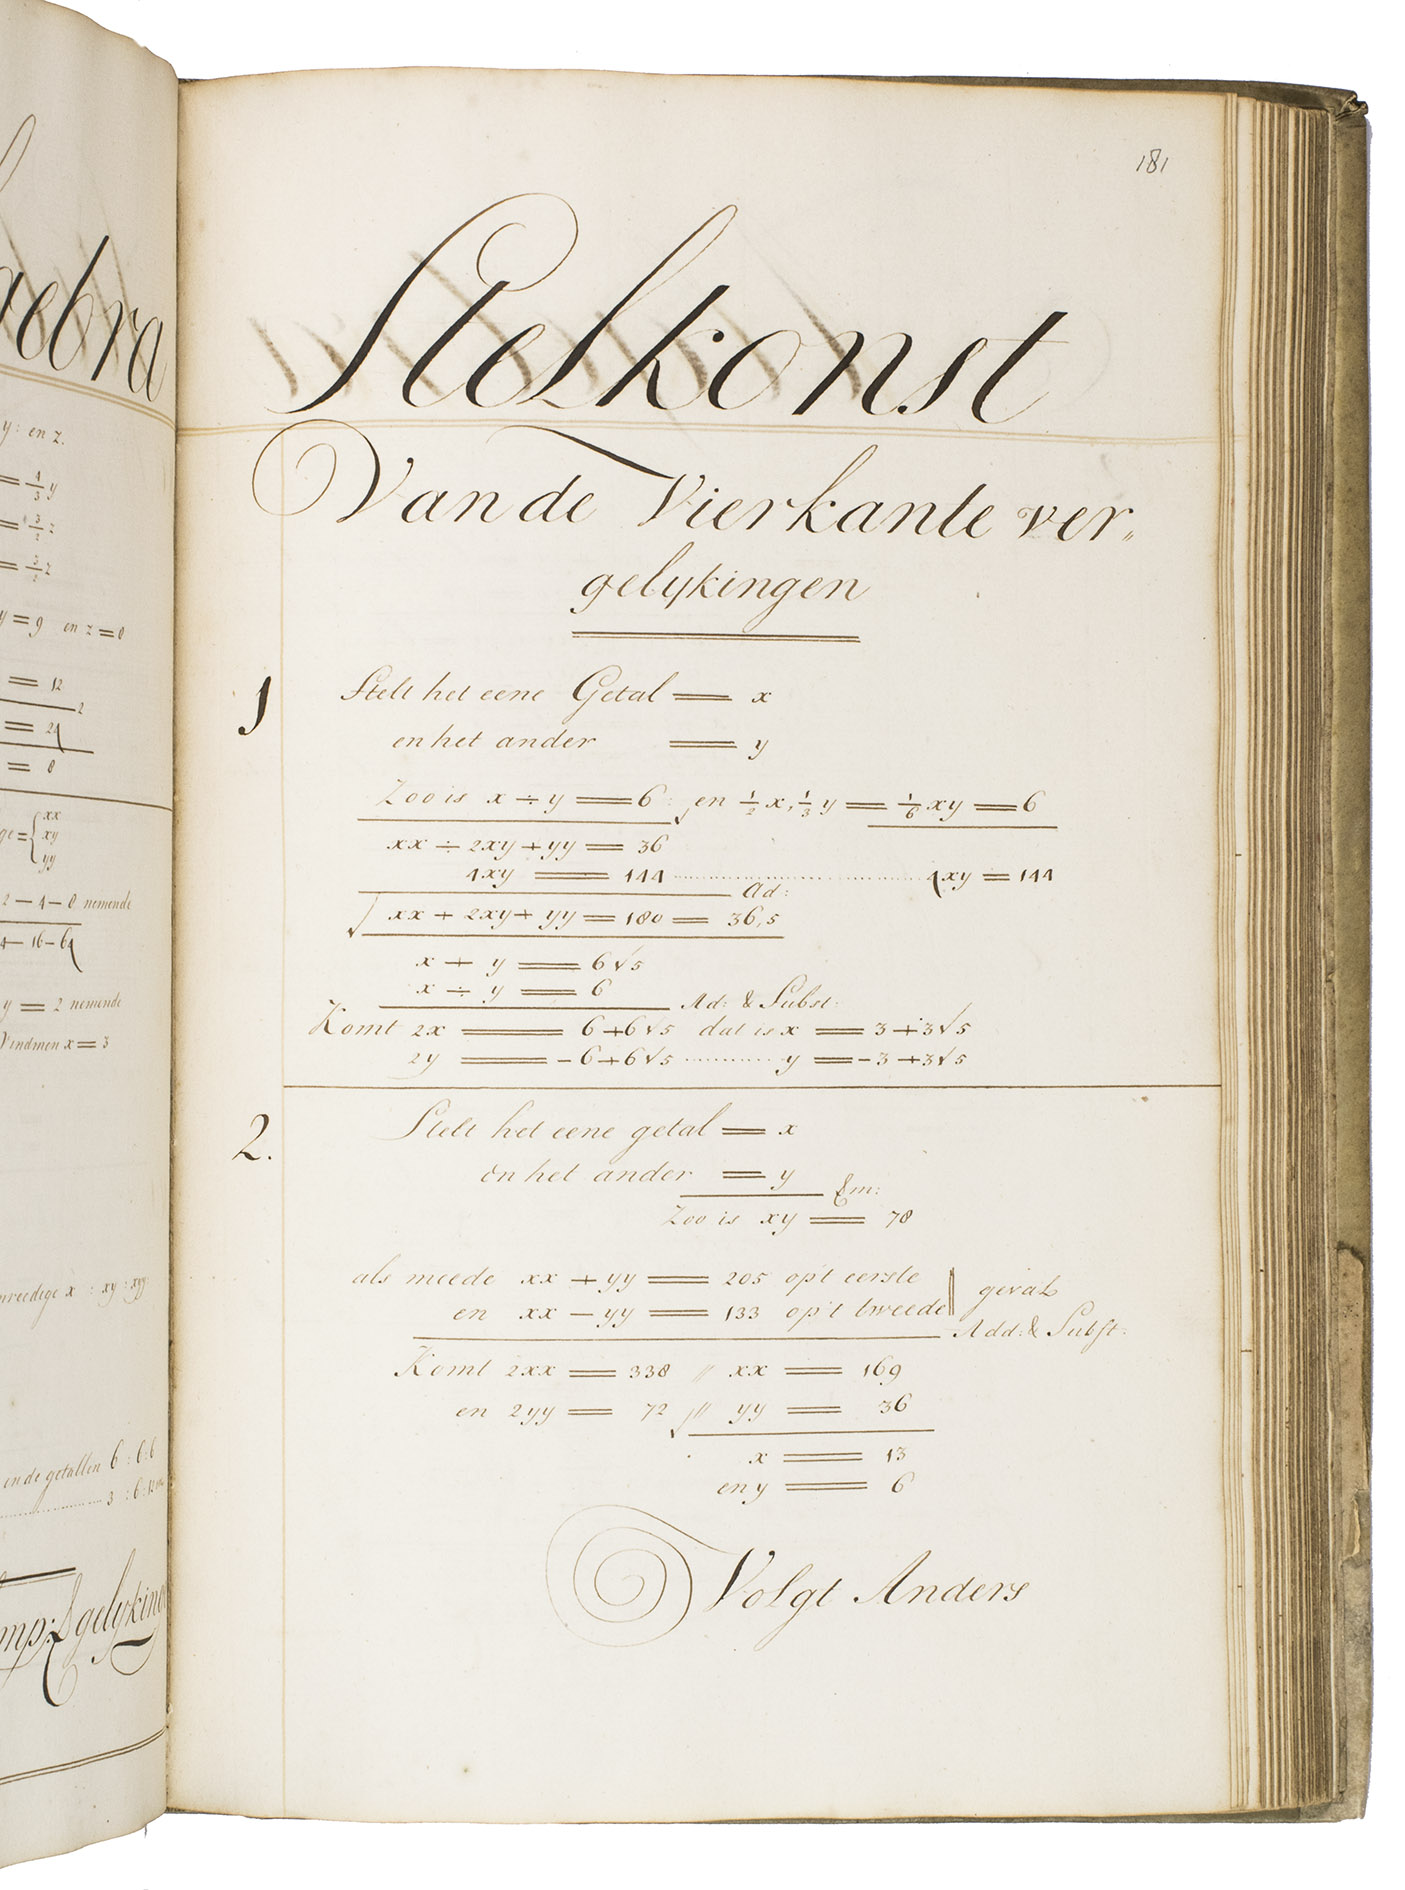 gebra
y : en z.
= 4/3 y
= 3/2 z
= 3/2 z
y = 9 en z = 8
= 12
2
= 24
= 8
ge = { xx
xy
yy
2 – 4 – 8 nemende
4 – 16 – 64
y = 2 nemende
Vindmen x = 3
x : xy : xyy
ende getallen 6 : 6 : 6
3 : 6 : 12
gelyking
181
Stelkonst
Van de Vierkante ver„
gelykingen
1 Stelt het eene Getal = x
en het ander = y
Zoo is x ÷ y = 6 : en 1/2 x, 1/3 y = 1/6 xy = 6
xx ÷ 2xy + yy = 36
4xy = 144 ............ 4xy = 144
Ad:
√ xx + 2xy + yy = 180 = 36,5
x + y = 6√5
x ÷ y = 6
Ad: & Subst:
Komt 2x = 6+6√5 dat is x = 3+3√5
2y = -6+6√5 ........ y = -3+3√5
2. Stelt het eene getal = x
en het ander = y
&m:
Zoo is xy = 78
als meede xx + yy = 205 op't eerste
en xx – yy = 133 op't tweede || geval
Add: & Subst:
Komt 2xx = 338 // xx = 169
en 2yy = 72 √ // yy = 36
x = 13
en y = 6
Volgt Anders